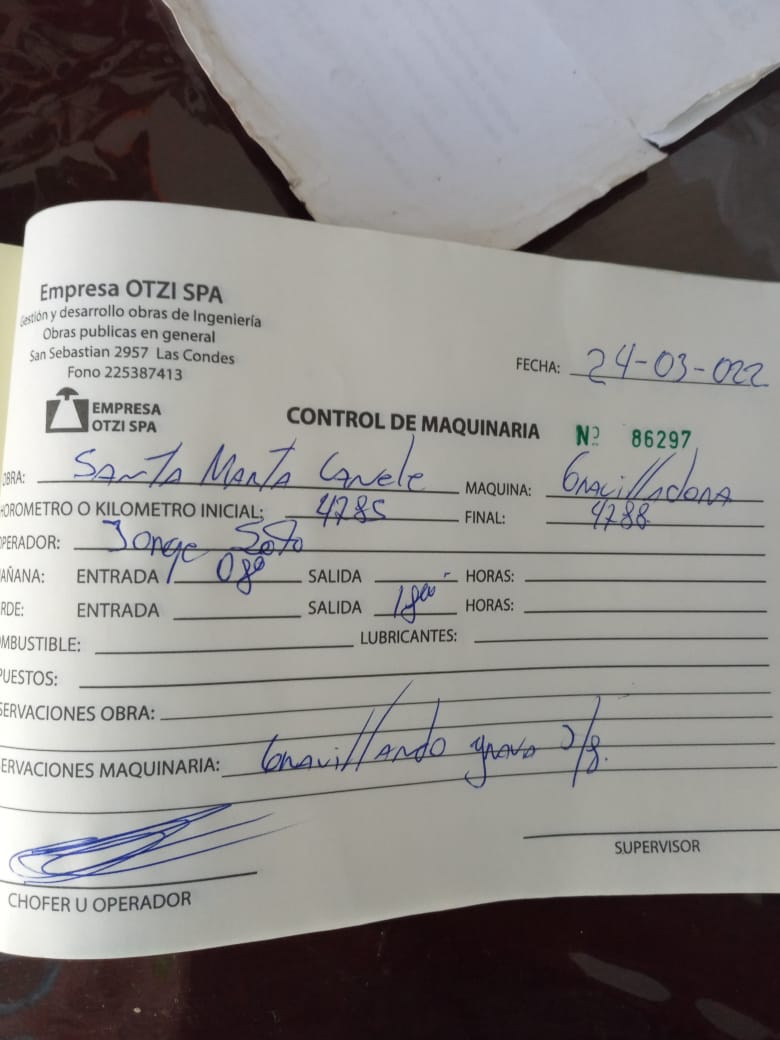 Empresa OTZI SPA
Gestión y desarrollo obras de Ingeniería
Obras publicas en general
San Sebastian 2957 Las Condes
Fono 225387413
FECHA: 24-03-022
EMPRESA
OTZI SPA
CONTROL DE MAQUINARIA
Nº 86297
OBRA: SANTA MARTA Canele MAQUINA: Gravilladora
HOROMETRO O KILOMETRO INICIAL: 4785 FINAL: 4788
OPERADOR: Jorge Soto
AÑANA: ENTRADA 08º SALIDA - HORAS:
RDE: ENTRADA SALIDA 18ºº HORAS:
MBUSTIBLE: LUBRICANTES:
PUESTOS:
SERVACIONES OBRA:
ERVACIONES MAQUINARIA: Gravillando grava 3/8.
CHOFER U OPERADOR
SUPERVISOR